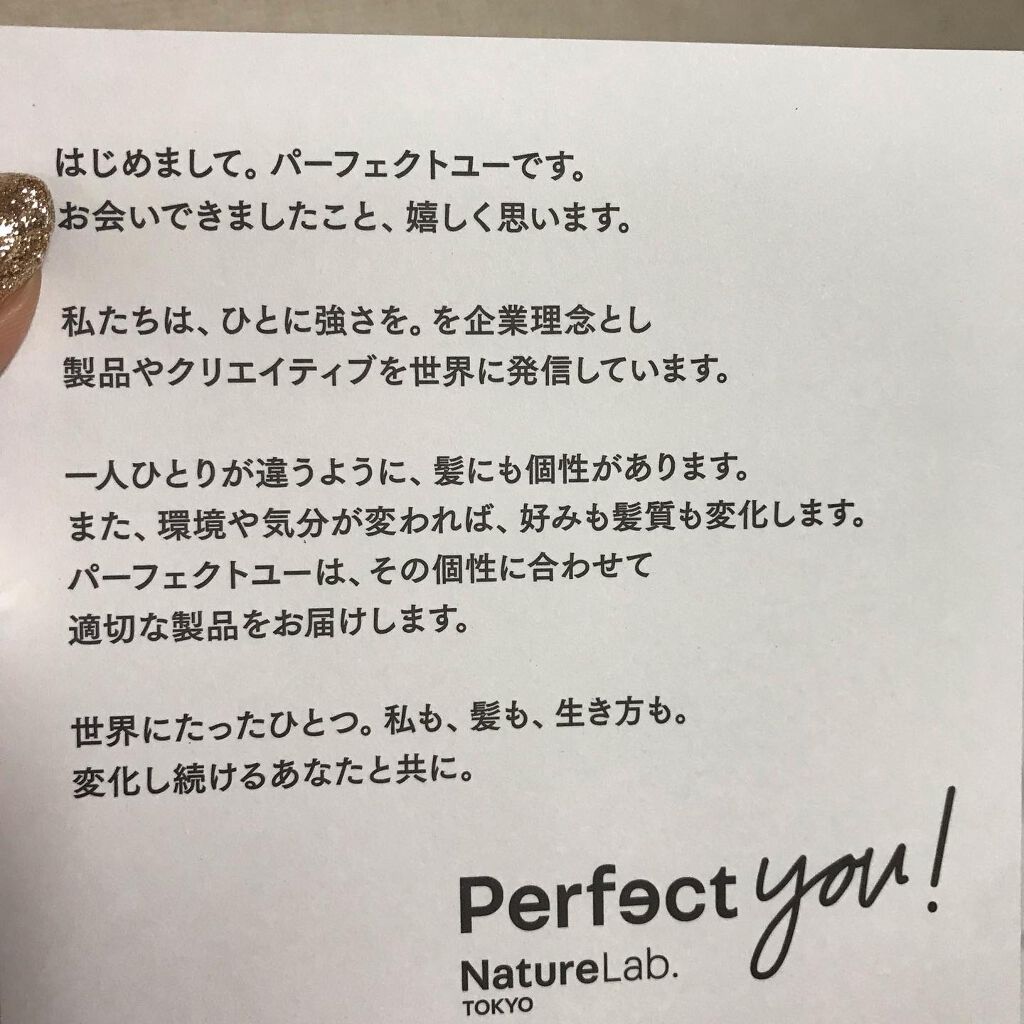 はじめまして。パーフェクトユーです。
お会いできましたこと、嬉しく思います。
私たちは、ひとに強さを。を企業理念とし
製品やクリエイティブを世界に発信しています。
一人ひとりが違うように、髪にも個性があります。
また、環境や気分が変われば、好みも髪質も変化します。
パーフェクトユーは、その個性に合わせて
適切な製品をお届けします。
世界にたったひとつ。私も、髪も、生き方も。
変化し続けるあなたと共に。
Perfect you!
NatureLab.
TOKYO